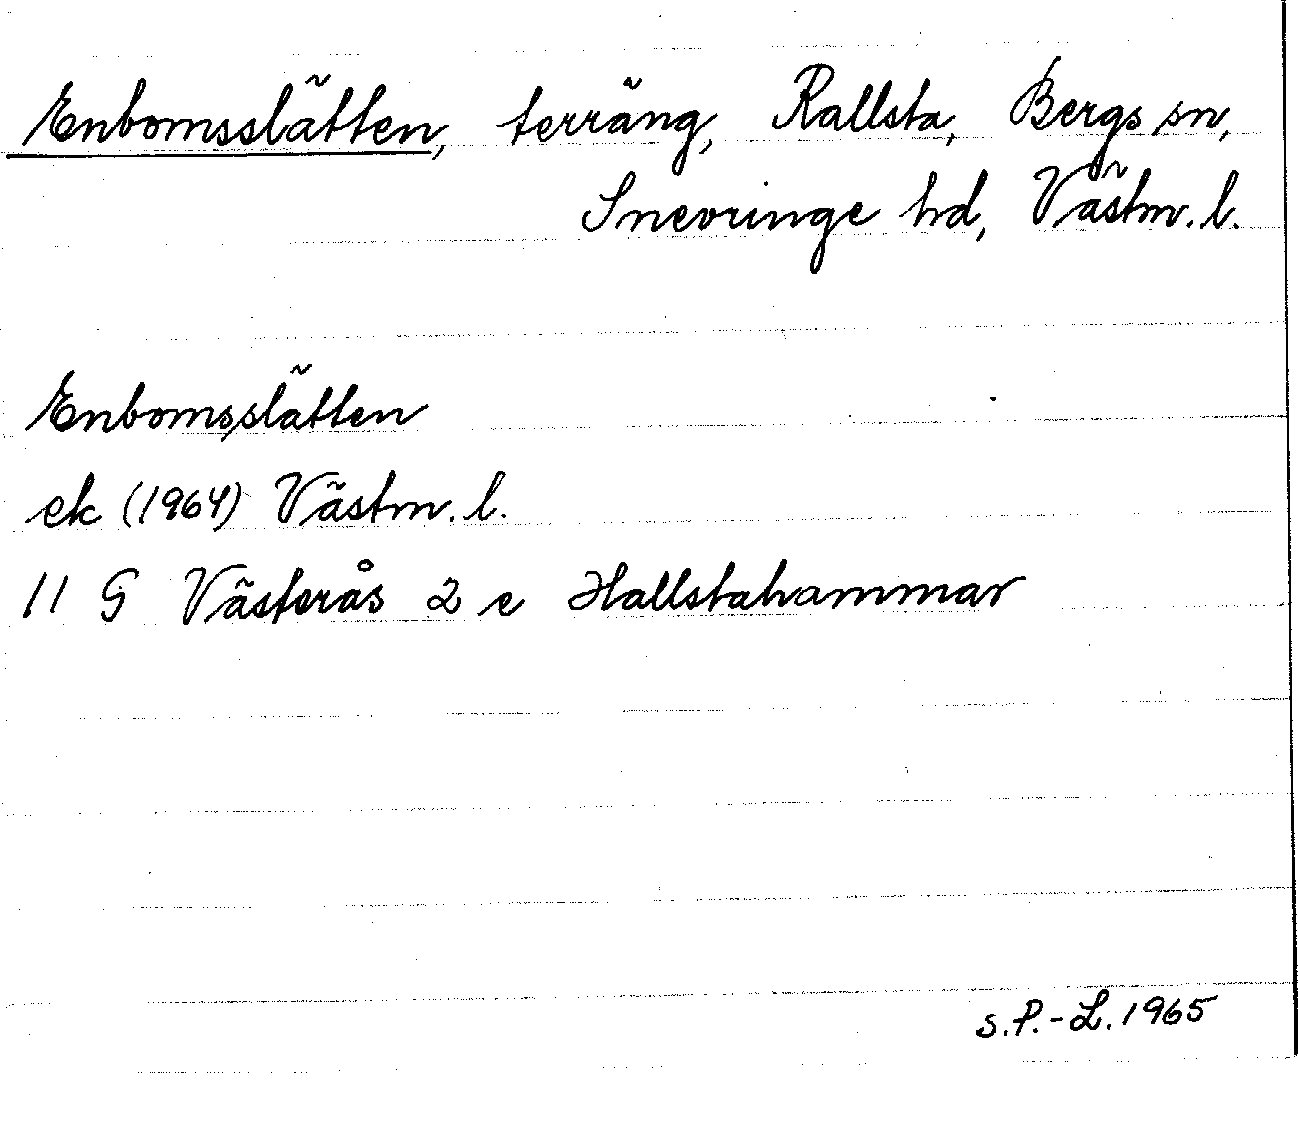 Enbomsslätten, terräng, Rallsta, Bergs sn,
Snevringe hd, Västm. l.
Enbomsslätten
ek (1964) Västm. l.
11 G Västerås 2 e Hallstahammar
S.P.-L. 1965